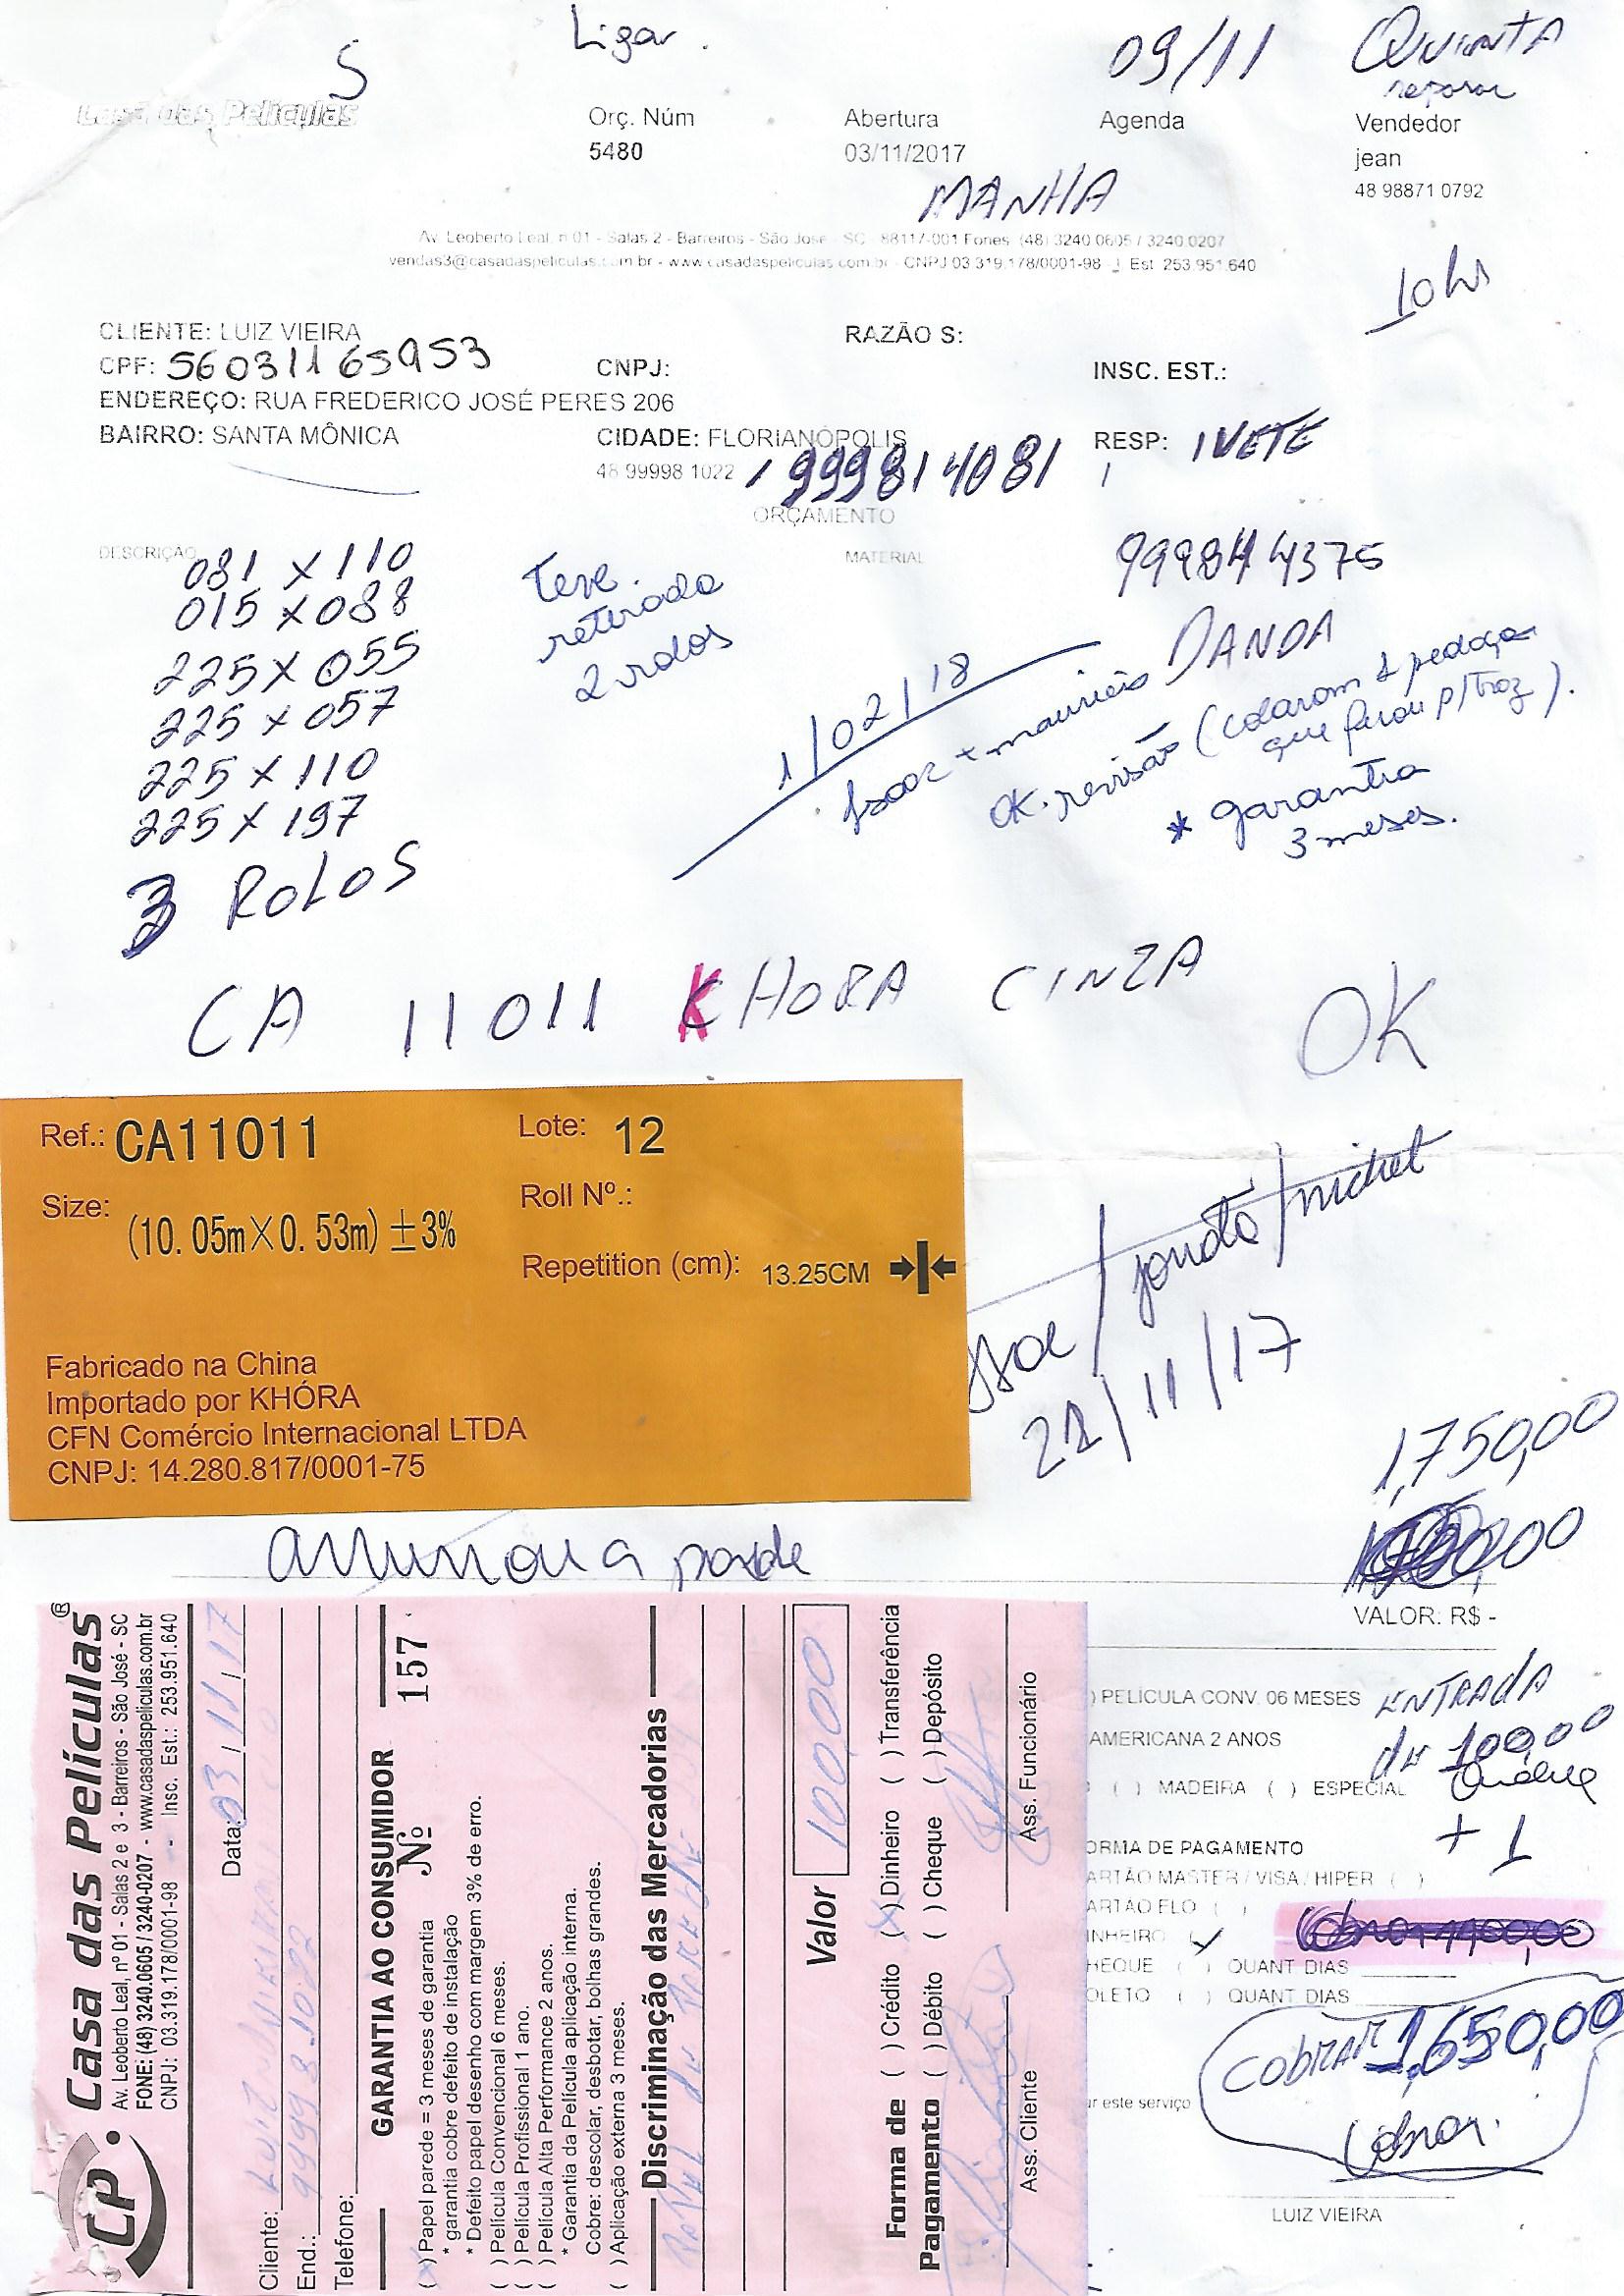 S
Ligar.
09/11
QUINTA
reparar
Casa das Películas
Orç. Núm
5480
Abertura
03/11/2017
Agenda
Vendedor
jean
48 98871 0792
MANHA
Av. Leoberto Leal, n 01 - Salas 2 - Barreiros - São José - SC - 88117-001 Fones: (48) 3240.0605 / 3240.0207
vendas3@casadaspeliculas.com.br - www.casadaspeliculas.com.br - CNPJ 03.319.178/0001-98 - I. Est. 253.951.640
10hs
CLIENTE: LUIZ VIEIRA
RAZÃO S:
CPF: 56031165953
CNPJ:
INSC. EST.:
ENDEREÇO: RUA FREDERICO JOSÉ PERES 206
BAIRRO: SANTA MÔNICA
CIDADE: FLORIANÓPOLIS
RESP: IVETE
48 99998 1022 / 999814081
ORÇAMENTO
DESCRIÇÃO
MATERIAL
999844375
DANDA
081 X 110
015 X 088
225 X 055
225 X 057
225 X 110
225 X 197
3 ROLOS
Teve.
retirada
2 rolos
1/02/18
Isaac + mauricio
OK. revisão (colaram 1 pedaço
que farou p/ traz).
* garantia
3 meses.
CA 11011 KHORA CINZA
OK
Ref.: CA11011
Lote: 12
Size: (10.05m×0.53m) ±3%
Roll Nº.:
Repetition (cm): 13.25CM
Fabricado na China
Importado por KHÓRA
CFN Comércio Internacional LTDA
CNPJ: 14.280.817/0001-75
22/11/17
1,750,00
VALOR: R$ -
) PELÍCULA CONV. 06 MESES
AMERICANA 2 ANOS
( ) MADEIRA ( ) ESPECIAL
ENTRADA
de 100,00
+ 1
ORMA DE PAGAMENTO
ARTÃO MASTER / VISA / HIPER ( )
ARTÃO ELO ( )
INHEIRO (✓)
HEQUE ( ) QUANT DIAS
OLETO ( ) QUANT DIAS
COBRAR 1,650,00
Cobrar.
r este serviço
LUIZ VIEIRA
CP. Casa das Películas®
Av. Leoberto Leal, nº 01 - Salas 2 e 3 - Barreiros - São José - SC
FONE: (48) 3240.0605 / 3240-0207 - www.casadaspeliculas.com.br
CNPJ: 03.319.178/0001-98 - Insc. Est.: 253.951.640
Data: 03/11/17
Cliente: LUIZ VIEIRA
End.: 9999 8.1022
Telefone:
GARANTIA AO CONSUMIDOR Nº 157
(X) Papel parede = 3 meses de garantia
* garantia cobre defeito de instalação
* Defeito papel desenho com margem 3% de erro.
( ) Película Convencional 6 meses.
( ) Película Profissional 1 ano.
( ) Película Alta Performance 2 anos.
* Garantia da Película aplicação interna.
Cobre: descolar, desbotar, bolhas grandes.
( ) Aplicação externa 3 meses.
Discriminação das Mercadorias
PAPEL DE PAREDE
Valor 100,00
Forma de Pagamento
( ) Crédito (X) Dinheiro ( ) Transferência
( ) Débito ( ) Cheque ( ) Depósito
Ass. Cliente
Ass. Funcionário